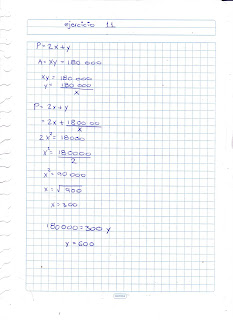 ejercicio 11
P=2x+y
A=XY=180 000
xy=180 000
y= 180 000
x
P=2x+y
=2x+180000
x
2x²=18000
x²=180000
2
x²=90000
x=√900
x=300
180000=300 y
y=600